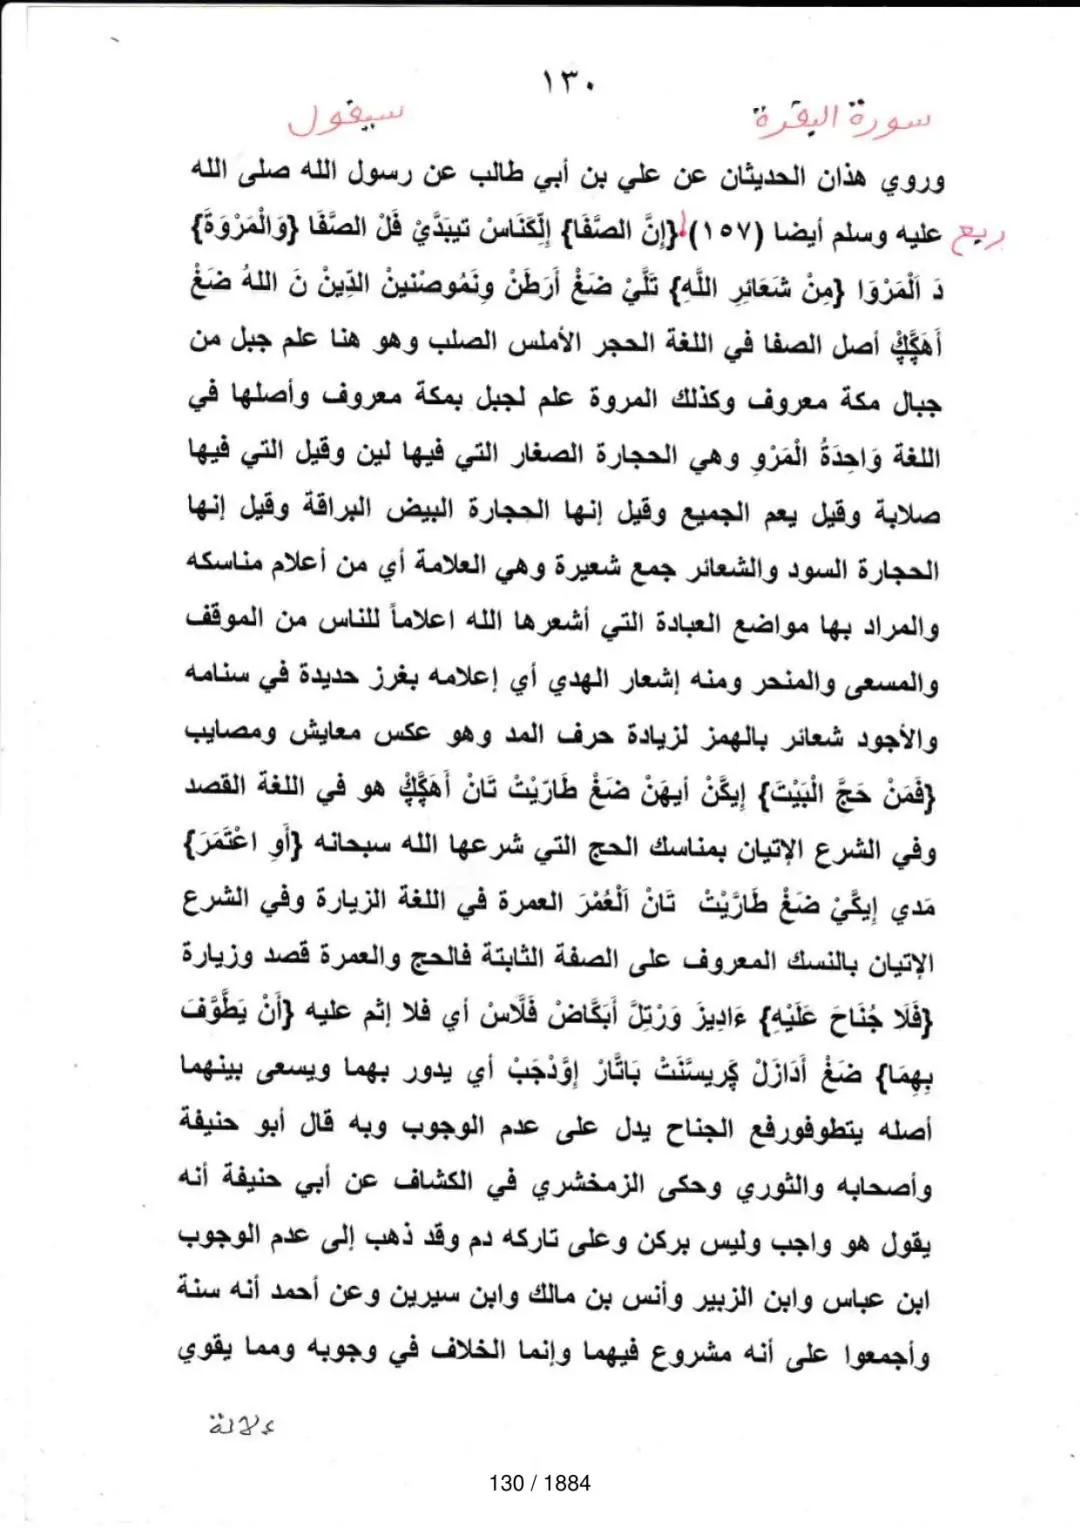 ١٣٠
سورة البقرة سيقول
وروي هذان الحديثان عن علي بن أبي طالب عن رسول الله صلى الله
ربع عليه وسلم أيضا (١٥٧) {إِنَّ الصَّفَا} إِلْكَنَاسْ تِيبَدَّيْ فَلْ الصَّفَا {وَالْمَرْوَةَ}
دَ اَلْمَرْوَا {مِنْ شَعَائِرِ اللَّهِ} تَلَّيْ ضَغْ أَرَطَنْ وِنَمُوصْنِينْ الدِّينْ نَ اللهْ ضَغْ
أَهَكِّكْ أصل الصفا في اللغة الحجر الأملس الصلب وهو هنا علم جبل من
جبال مكة معروف وكذلك المروة علم لجبل بمكة معروف وأصلها في
اللغة وَاحِدَةُ الْمَرْوِ وهي الحجارة الصغار التي فيها لين وقيل التي فيها
صلابة وقيل يعم الجميع وقيل إنها الحجارة البيض البراقة وقيل إنها
الحجارة السود والشعائر جمع شعيرة وهي العلامة أي من أعلام مناسكه
والمراد بها مواضع العبادة التي أشعرها الله اعلاماً للناس من الموقف
والمسعى والمنحر ومنه إشعار الهدي أي إعلامه بغرز حديدة في سنامه
والأجود شعائر بالهمز لزيادة حرف المد وهو عكس معايش ومصايب
{فَمَنْ حَجَّ الْبَيْتَ} إِيكَّنْ أيهَنْ ضَغْ طَارَيْتْ تَانْ أَهَكِّكْ هو في اللغة القصد
وفي الشرع الإتيان بمناسك الحج التي شرعها الله سبحانه {أَوِ اعْتَمَرَ}
مَدي إِيكَّيْ ضَغْ طَارَيْتْ تَانْ اَلْعُمْرَ العمرة في اللغة الزيارة وفي الشرع
الإتيان بالنسك المعروف على الصفة الثابتة فالحج والعمرة قصد وزيارة
{فَلَا جُنَاحَ عَلَيْهِ} ءَادِيزَ وَرْتِلَّ أَبَكَّاضْ فَلَّاسْ أي فلا إثم عليه {أَنْ يَطَّوَّفَ
بِهِمَا} ضَغْ أَدَازَلْ كَرِيسَّنَتْ بَاتَّارْ إِوَّدْجَبْ أي يدور بهما ويسعى بينهما
أصله يتطوفورفع الجناح يدل على عدم الوجوب وبه قال أبو حنيفة
وأصحابه والثوري وحكى الزمخشري في الكشاف عن أبي حنيفة أنه
يقول هو واجب وليس بركن وعلى تاركه دم وقد ذهب إلى عدم الوجوب
ابن عباس وابن الزبير وأنس بن مالك وابن سيرين وعن أحمد أنه سنة
وأجمعوا على أنه مشروع فيهما وإنما الخلاف في وجوبه ومما يقوي
130 / 1884